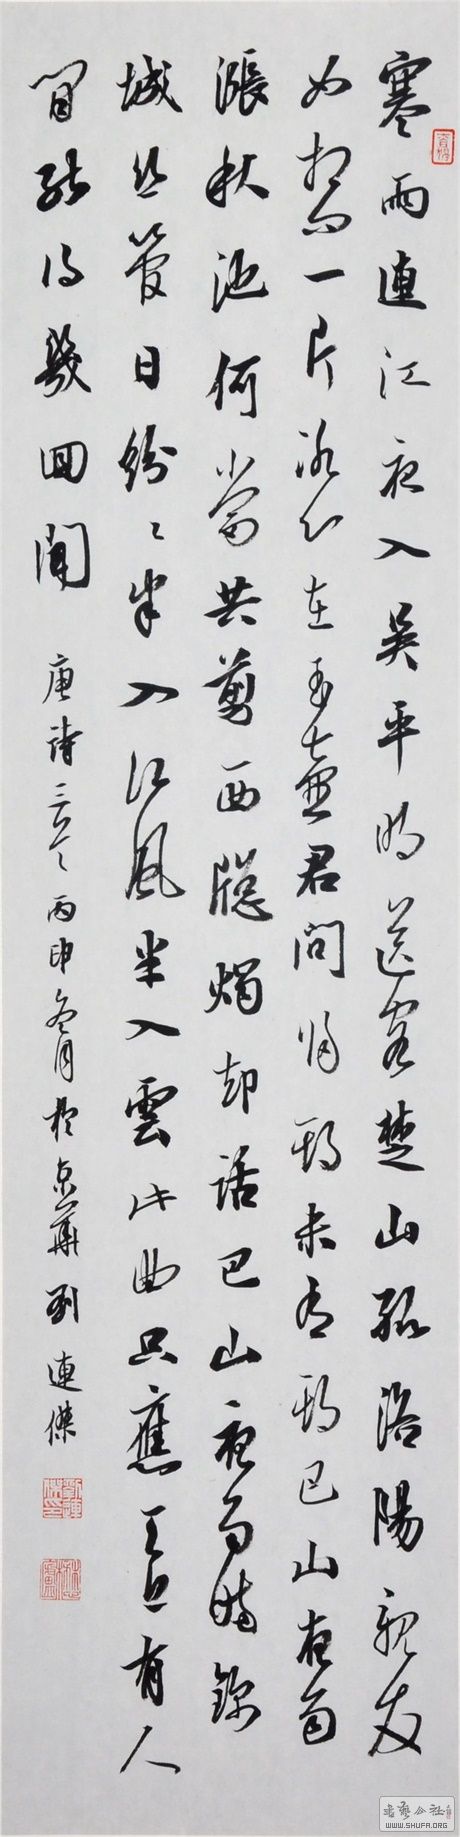 寒雨連江夜入吳平明送客楚山孤洛陽親友
如相問一片冰心在玉壺君問歸期未有期巴山夜雨
漲秋池何當共剪西牕燭却話巴山夜雨時錦
城絲管日紛〻半入江風半入雲此曲只應天上有人
間能得幾回聞 唐詩三首 丙申冬月於京華劉連傑
WWW.SHUFA.ORG